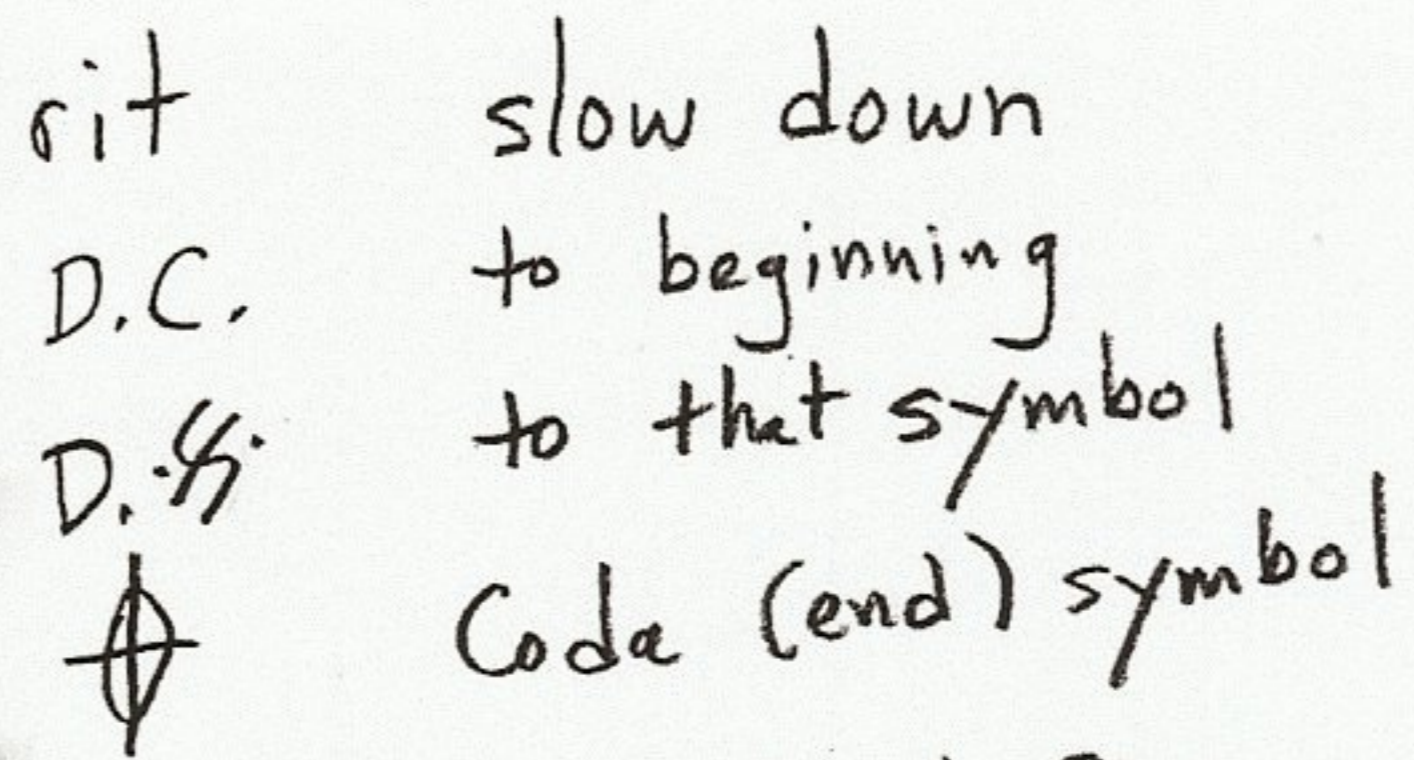 rit slow down
D.C. to beginning
D.𝄋 to that symbol
𝄌 Coda (end) symbol